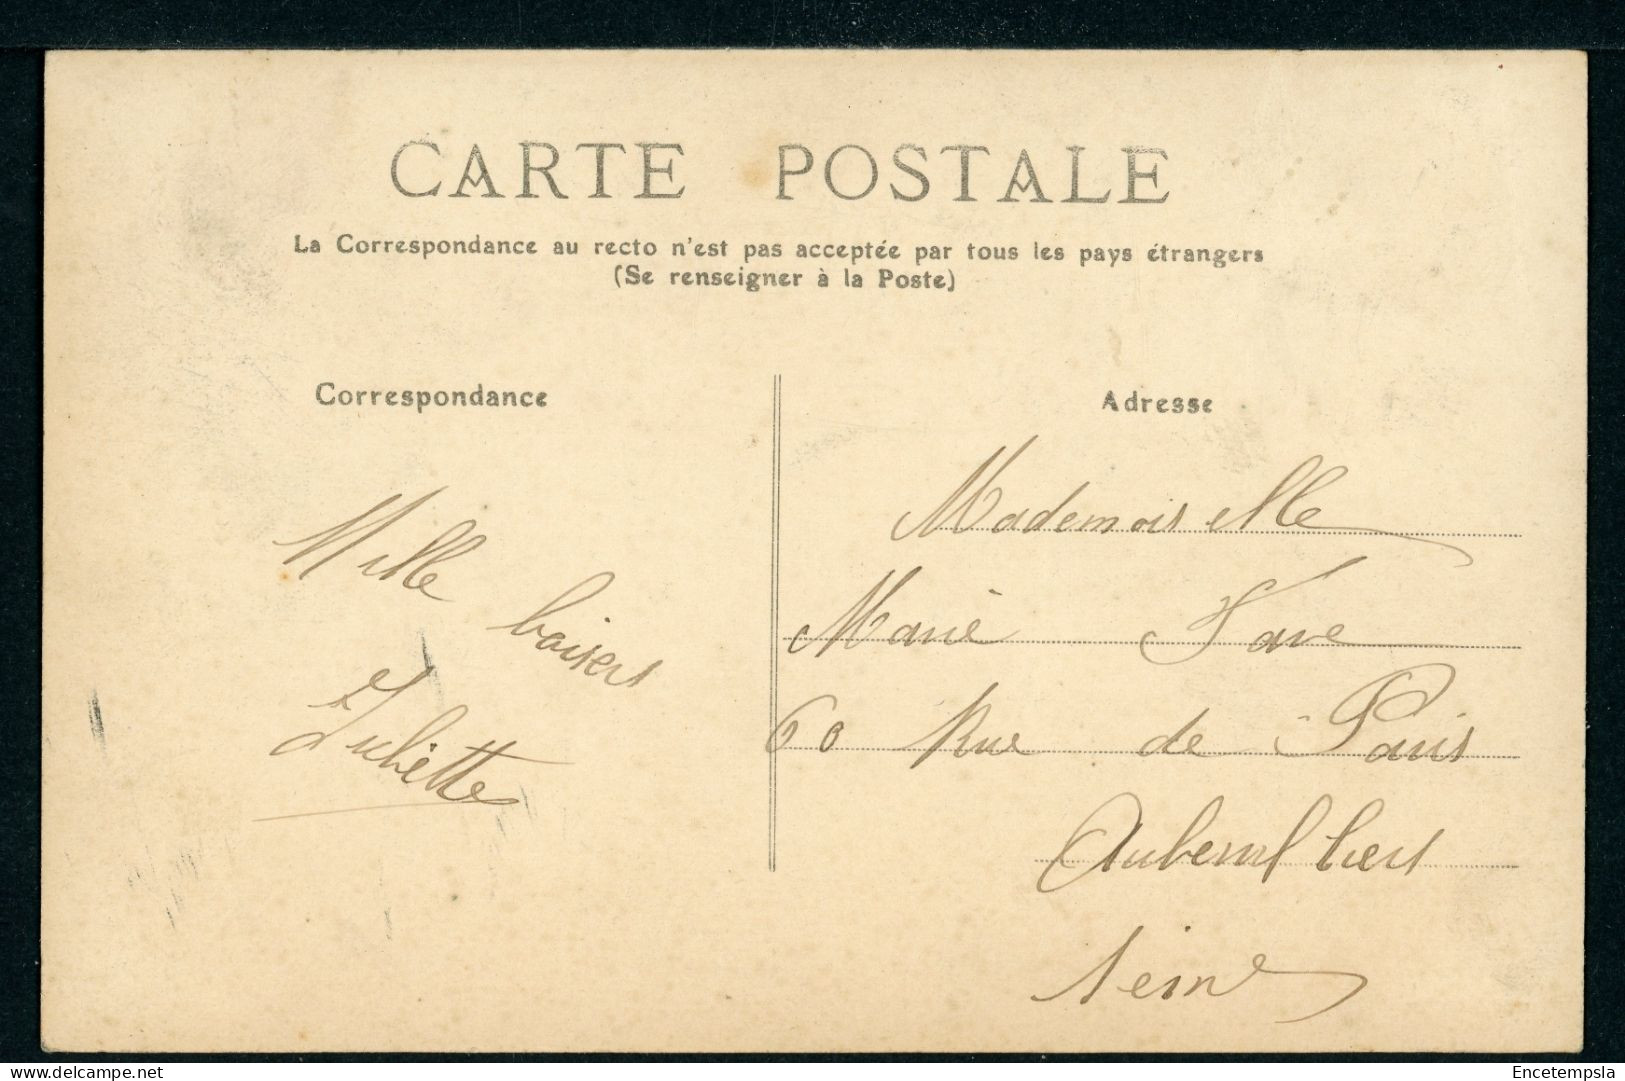 CARTE POSTALE
La Correspondance au recto n'est pas acceptée par tous les pays étrangers
(Se renseigner à la Poste)
Correspondance
Mille baisers
Juliette
Adresse
Mademoiselle
Marie Fave
60 Rue de Paris
Aubervilliers
Seine
delcampe.net
Encetempsla